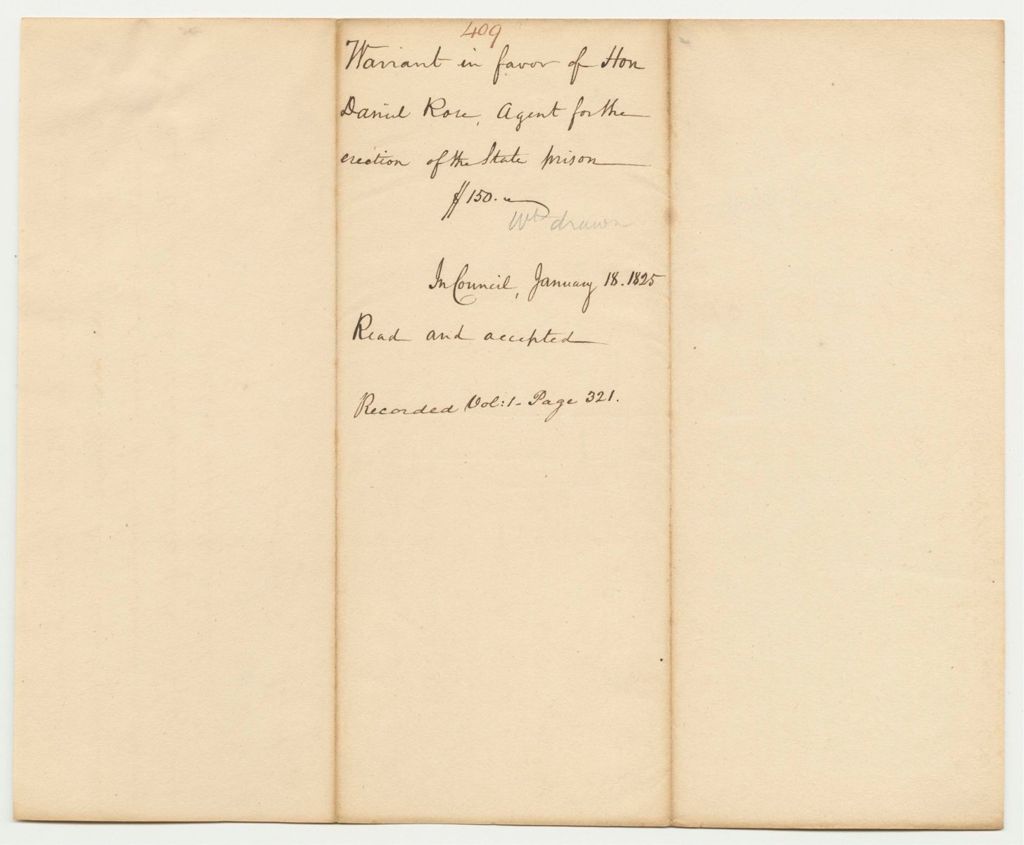 409
Warrant in favor of Hon
Daniel Rose, Agent for the
erection of the State prison
$150.
Wt drawn
In Council, January 18. 1825
Read and accepted
Recorded Vol: 1 - Page 321.